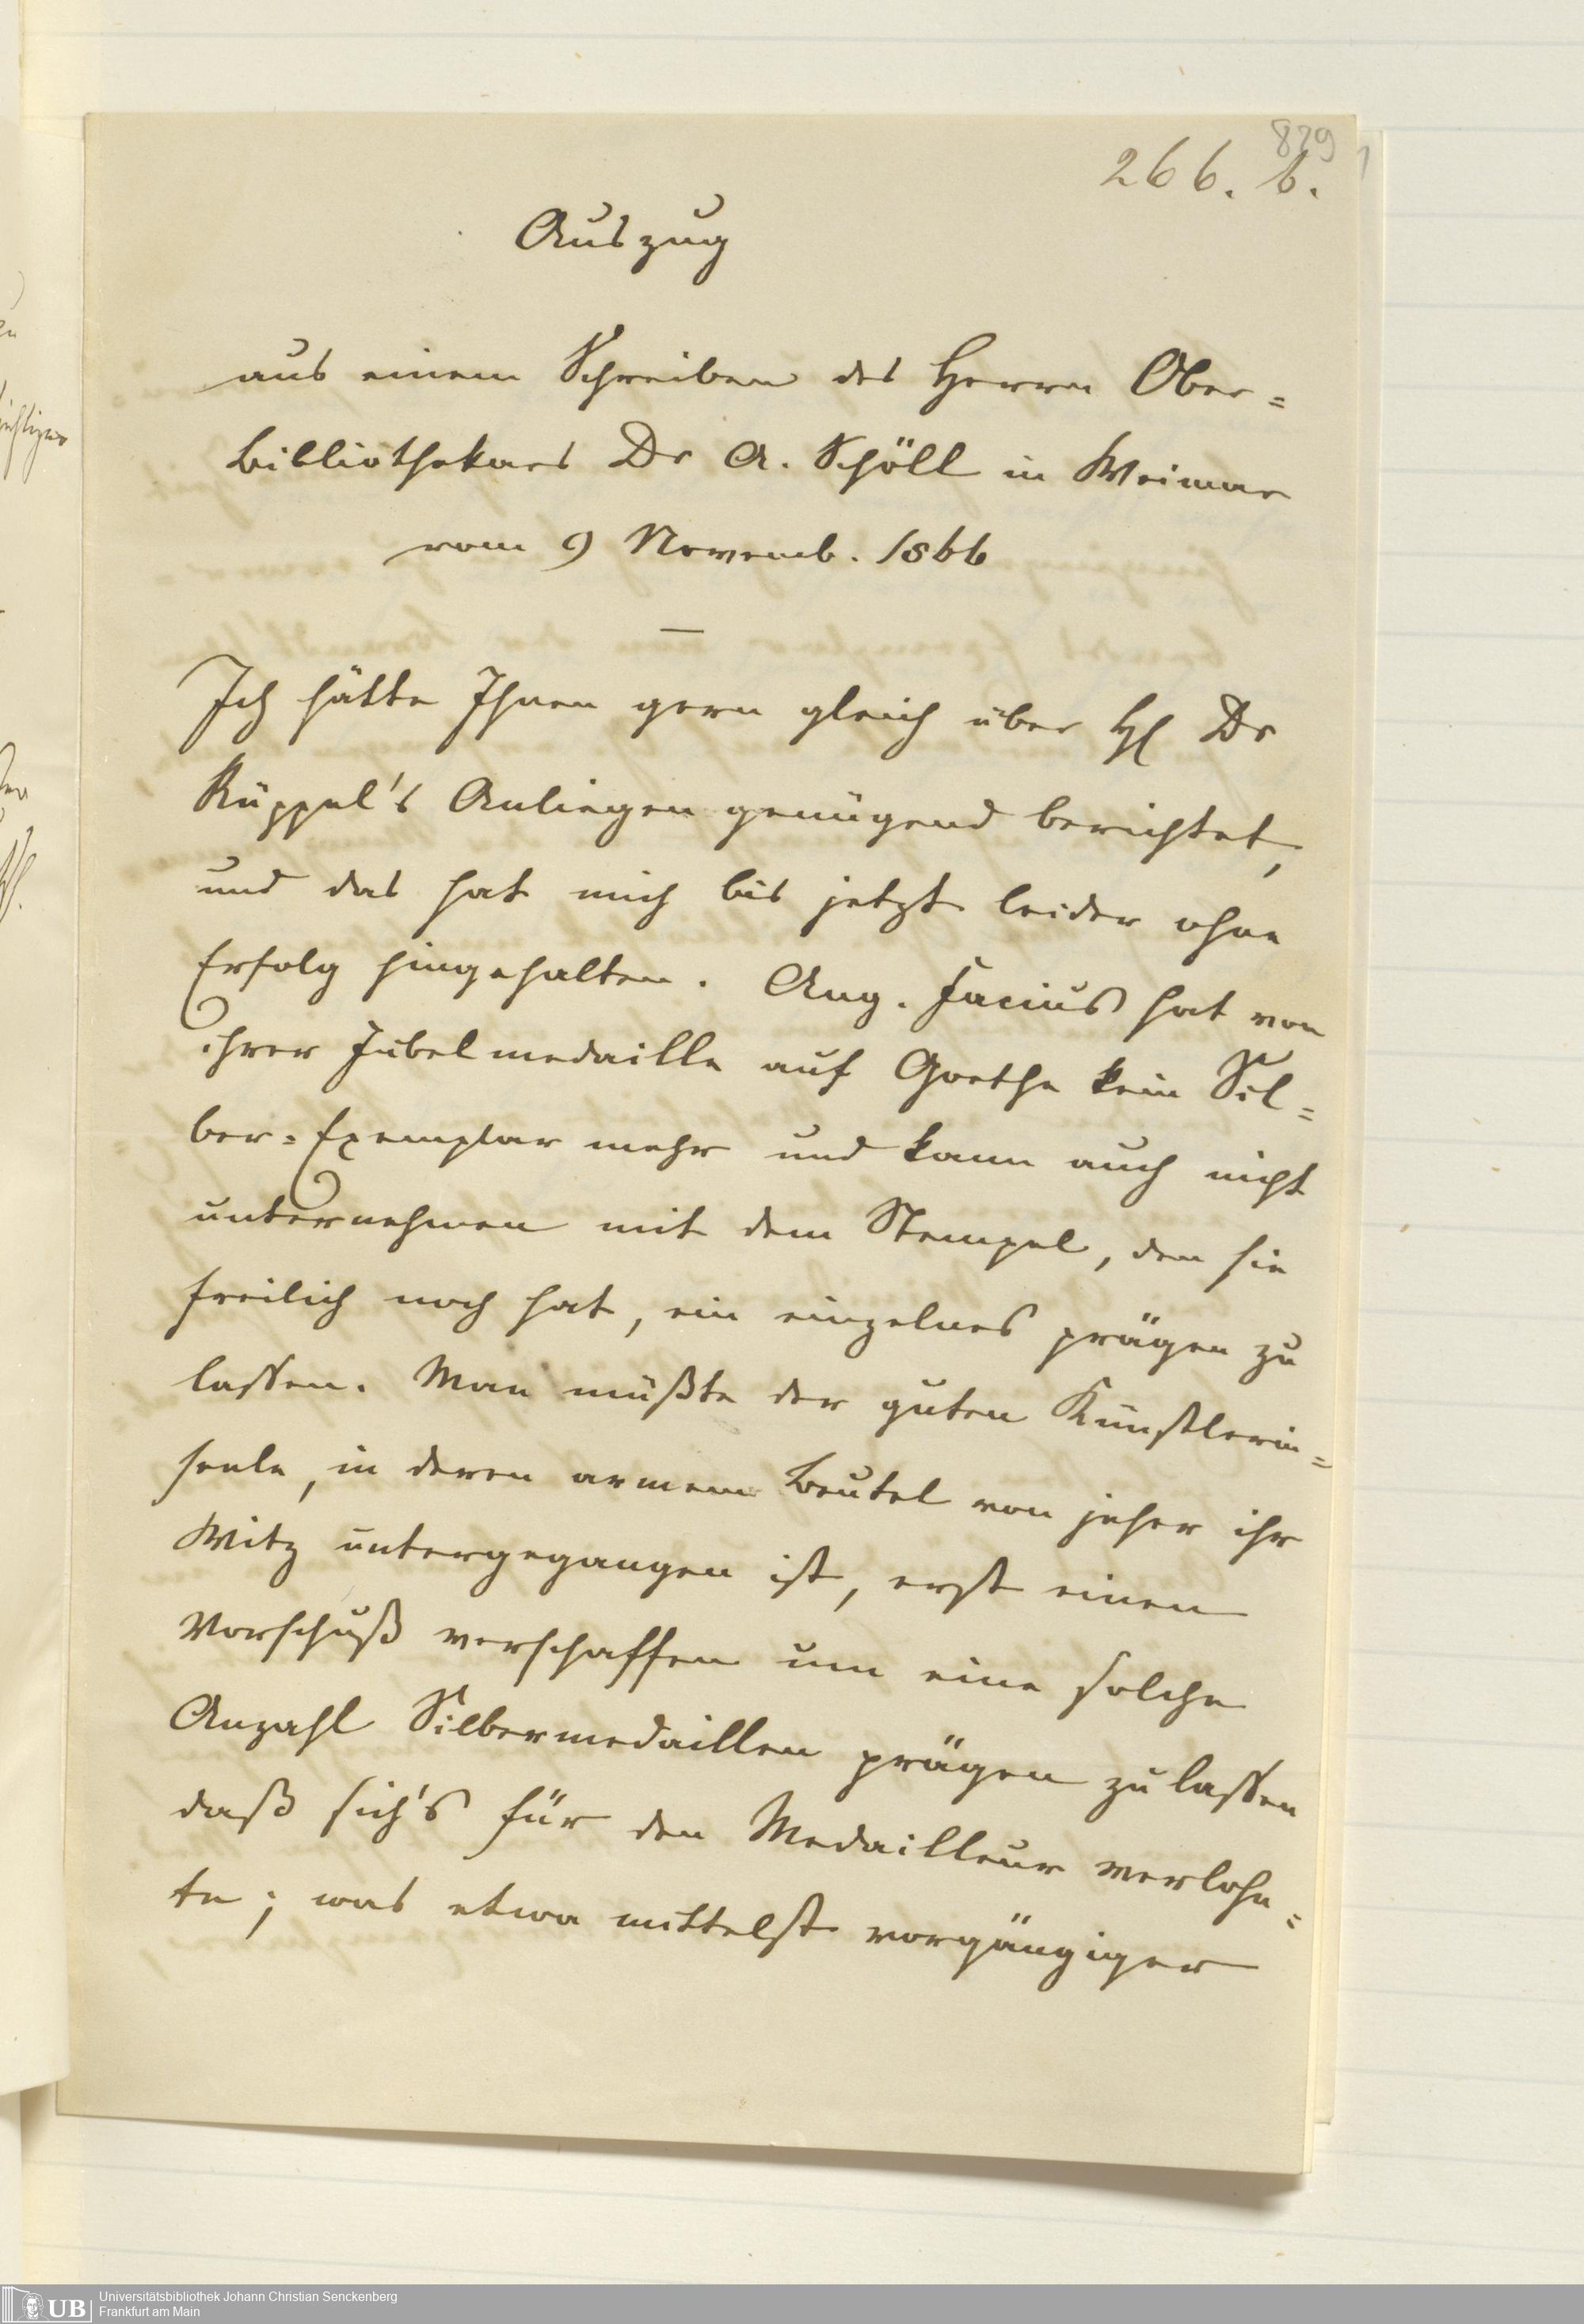 829
266. b.
Auszug
aus einem Schreiben des Herrn Ober=
bibliothekars Dr A. Schöll in Weimar
vom 9 Novemb. 1866
Ich hätte Ihnen gern gleich über H Dr
Rüppel's Anliegen genügend berichtet,
und das hat mich bis jetzt leider ohne
Erfolg hingehalten. Ang. Facius hat von
ihrer Jubelmedaille auf Goethe kein Sil=
ber=Exemplar mehr und kann auch nicht
unternehmen mit dem Stempel, den sie
freilich noch hat, ein einzelnes prägen zu
lassen. Man müßte der guten Künstlerin=
seele, in deren armem Beutel von jeher ihr
Witz untergegangen ist, erst einen
Vorschuß verschaffen um eine solche
Anzahl Silbermedaillen prägen zu lassen
daß sich's für den Medailleur verlohn=
te; was etwa mittelst vorgängiger
UB
Universitätsbibliothek Johann Christian Senckenberg
Frankfurt am Main